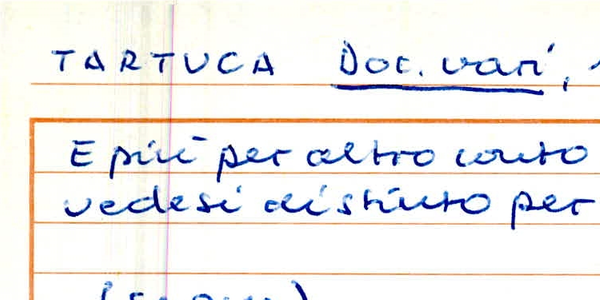 TARTUCA Doc. vari,
E più per altro conto
vedesi distinto per